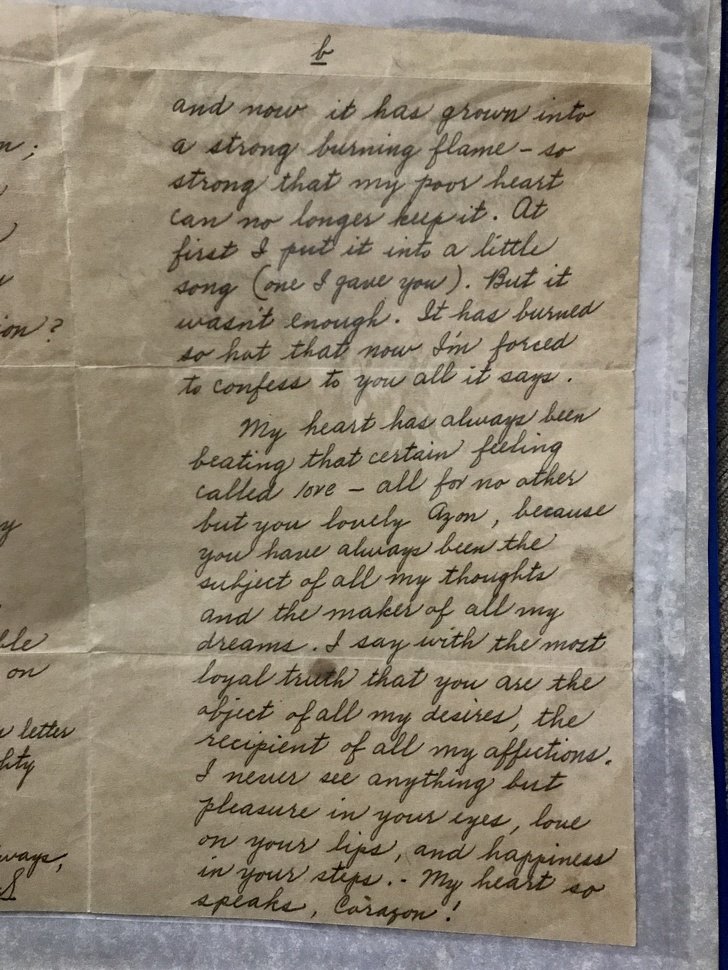 b
and now it has grown into
a strong burning flame – so
strong that my poor heart
can no longer keep it. At
first I put it into a little
song (one I gave you). But it
wasn't enough. It has burned
so hot that now I'm forced
to confess to you all it says.
My heart has always been
beating that certain feeling
called love – all for no other
but you lovely Azon, because
you have always been the
subject of all my thoughts
and the maker of all my
dreams. I say with the most
loyal truth that you are the
object of all my desires, the
recipient of all my affections.
I never see anything but
pleasure in your eyes, love
on your lips, and happiness
in your steps. - My heart so
speaks, Corazon!
ion?
on
letter